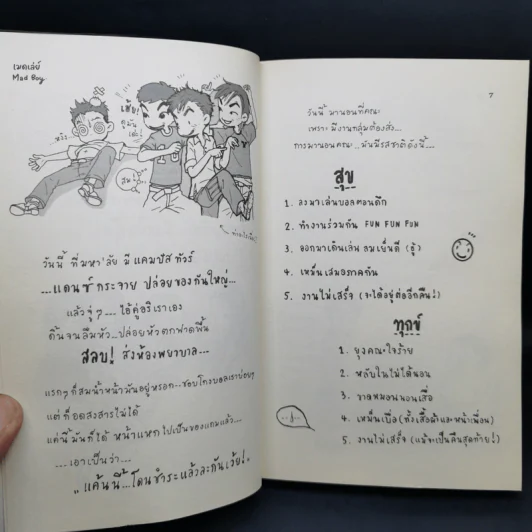 เมดเล่ย์
Mad Boy
เฮ้ย!
วันนี้ ที่มหา'ลัย มี แคมปัส ทัวร์
...แดนซ์ กระจาย ปล่อยของกันใหญ่...
แล้วจู่ๆ.... ไอ้คู่อริเราเอง
ดิ้นจนลืมหัว...ปล่อยหัวตกฟาดพื้น
สลบ! ส่งห้องพยาบาล...
แรกๆ ก็สมน้ำหน้ามันอยู่หรอก--ชอบโกงบอลเราบ่อยๆ
แต่ก็อดสงสารไม่ได้
แค่นี้ มันก็ได้ หน้าแหกไปเป็นของแถมแล้ว....
....เอาเป็นว่า....
"แค้นนี้...โดนชำระแล้วละกันเว้ย!"
7
วันนี้ มานอนที่คณะ
เพราะ มีงานกลุ่มต้องส่ง...
การมานอนคณะ...มันมีรสชาติดังนี้....
สุข
1. ลงมาเล่นบอลตอนดึก
2. ทำงานร่วมกัน FUN FUN FUN
3. ออกมาเดินเล่น ลมเย็นดี (ฐู้)
4. เหม็นเสมอภาคกัน
5. งานไม่เสร็จ (จะได้อยู่ต่ออีกคืน!)
ทุกข์
1. ยุงคณะใจร้าย
2. หลับในไม่ได้นอน
3. ขาดหมอนนอนเสื่อ
4. เหม็นเบื่อ (ทั้งเสื้อผ้าและหน้าเพื่อน)
5. งานไม่เสร็จ (แม้จะเป็นคืนสุดท้าย!)